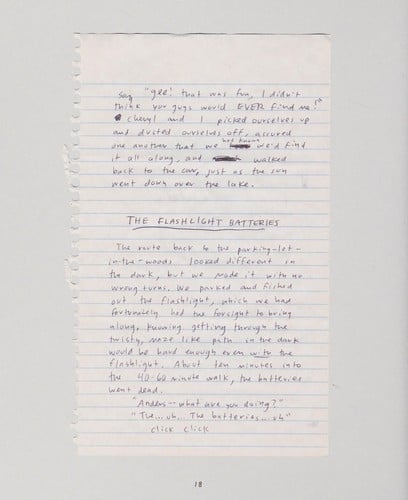 say "gee! that was fun, I didn't
think you guys would EVER find me!"
Cheryl and I picked ourselves up
and dusted ourselves off, assured
one another that we had known we'd find
it all along, and walked
back to the car, just as the sun
went down over the lake.
THE FLASHLIGHT BATTERIES
The route back to the parking-lot-
in-the-woods looked different in
the dark, but we made it with no
wrong turns. We parked and fished
out the flashlight, which we had
fortunately had the forsight to bring
along, knowing getting through the
twisty, maze like path in the dark
would be hard enough even with the
flashlight. About ten minutes into
the 40-60 minute walk, the batteries
went dead.
"Anders -- what are you doing?"
"The...uh... The batteries...uh"
click click
18